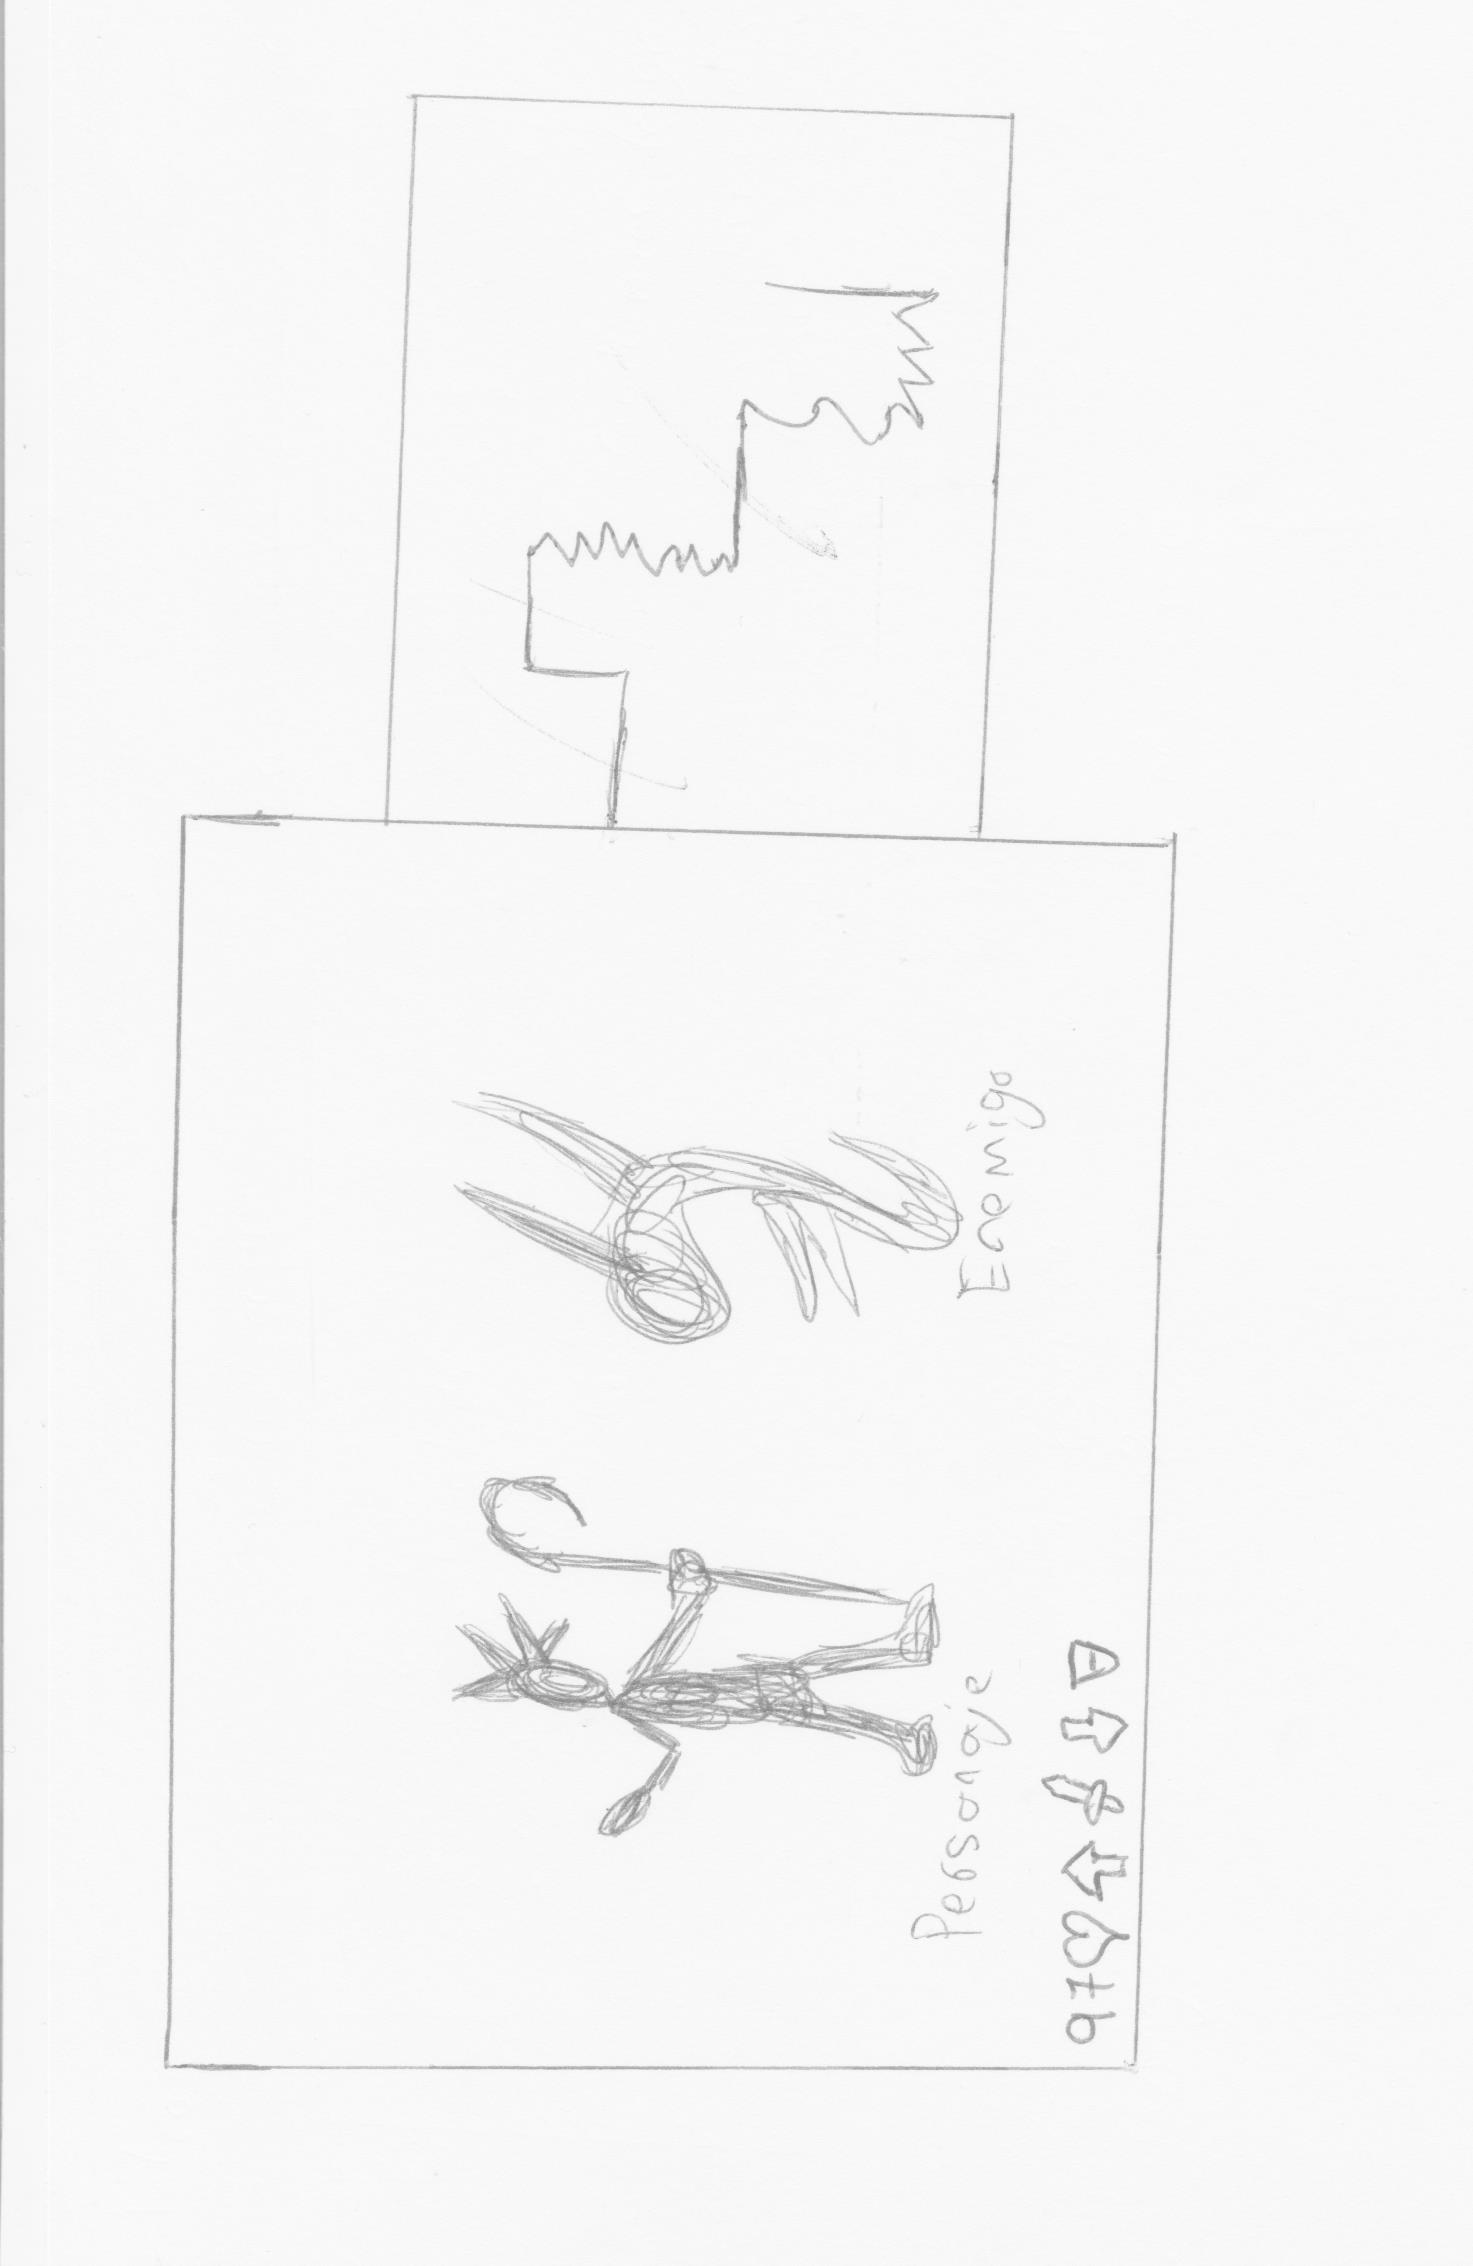 Personaje
Enemigo
97